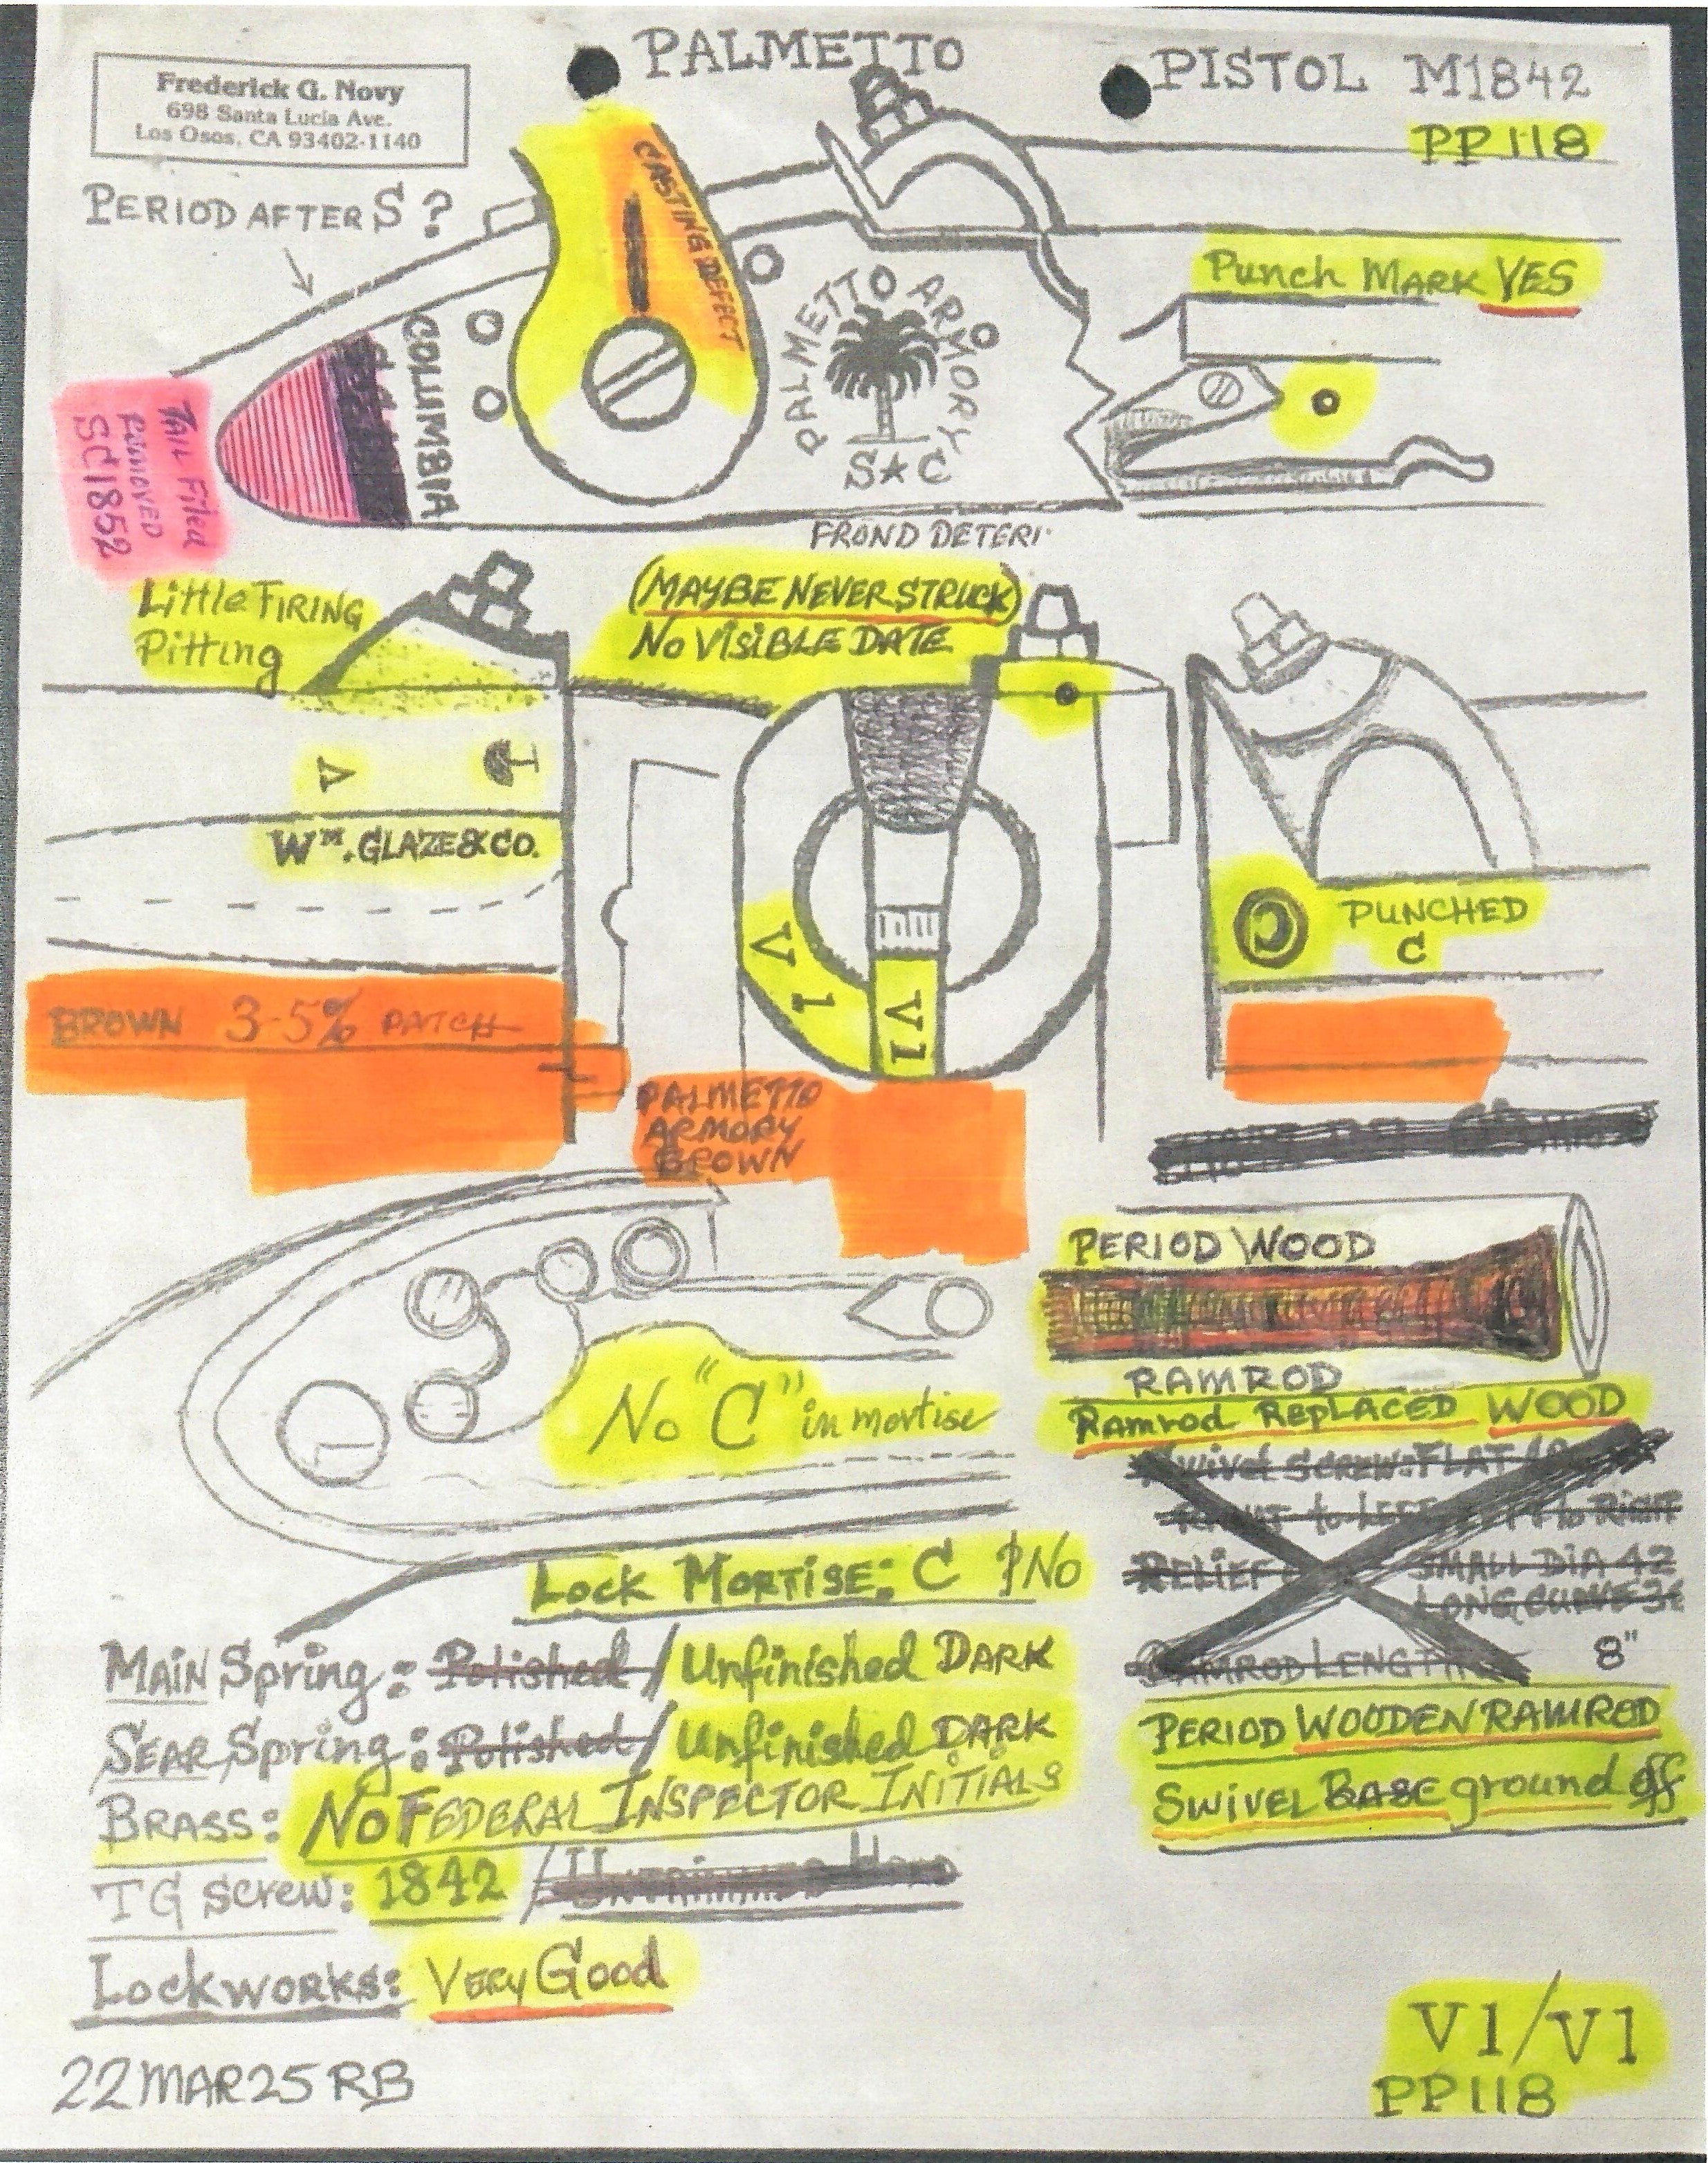 PALMETTO PISTOL M1842
PP118
Frederick G. Novy
698 Santa Lucia Ave.
Los Osos, CA 93402-1140
PERIOD AFTER S?
CASTING DEFECT
Punch MARK YES
COLUMBIA
PALMETTO ARMORY
S★C
TAIL Filed
REMOVED
SC1852
FROND DETERI.
Little FIRING
Pitting
(MAYBE NEVER STRUCK)
NO VISIBLE DATE
V
Wᴹ. GLAZE & CO.
V1
V1
C
PUNCHED
C
BROWN 3-5% PATCH
PALMETTO
ARMORY
BROWN
PERIOD WOOD
RAMROD
Ramrod REPLACED WOOD
No "C" in mortise
Swivel SCREW: FLAT
RIGHT to LEFT to RIGHT
RELIEF SMALL DIA 42
LONG CURVE
RAMROD LENGTH 8"
Lock MORTISE: C NO
MAIN Spring: Polished / Unfinished DARK
SEAR Spring: Polished / Unfinished DARK
BRASS: NO FEDERAL INSPECTOR INITIALS
TG Screw: 1842 /
Lockworks: VERY Good
PERIOD WOODEN RAMROD
SWIVEL BASE ground off
22MAR25 RB
V1/V1
PP118